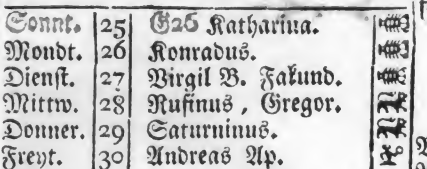 Sonnt. 25 G26 Katharina.
Mondt. 26 Konradus.
Dienst. 27 Virgil B. Fakund.
Mittw. 28 Rufinus, Gregor.
Donner. 29 Saturninus.
Freyt. 30 Andreas Ap.